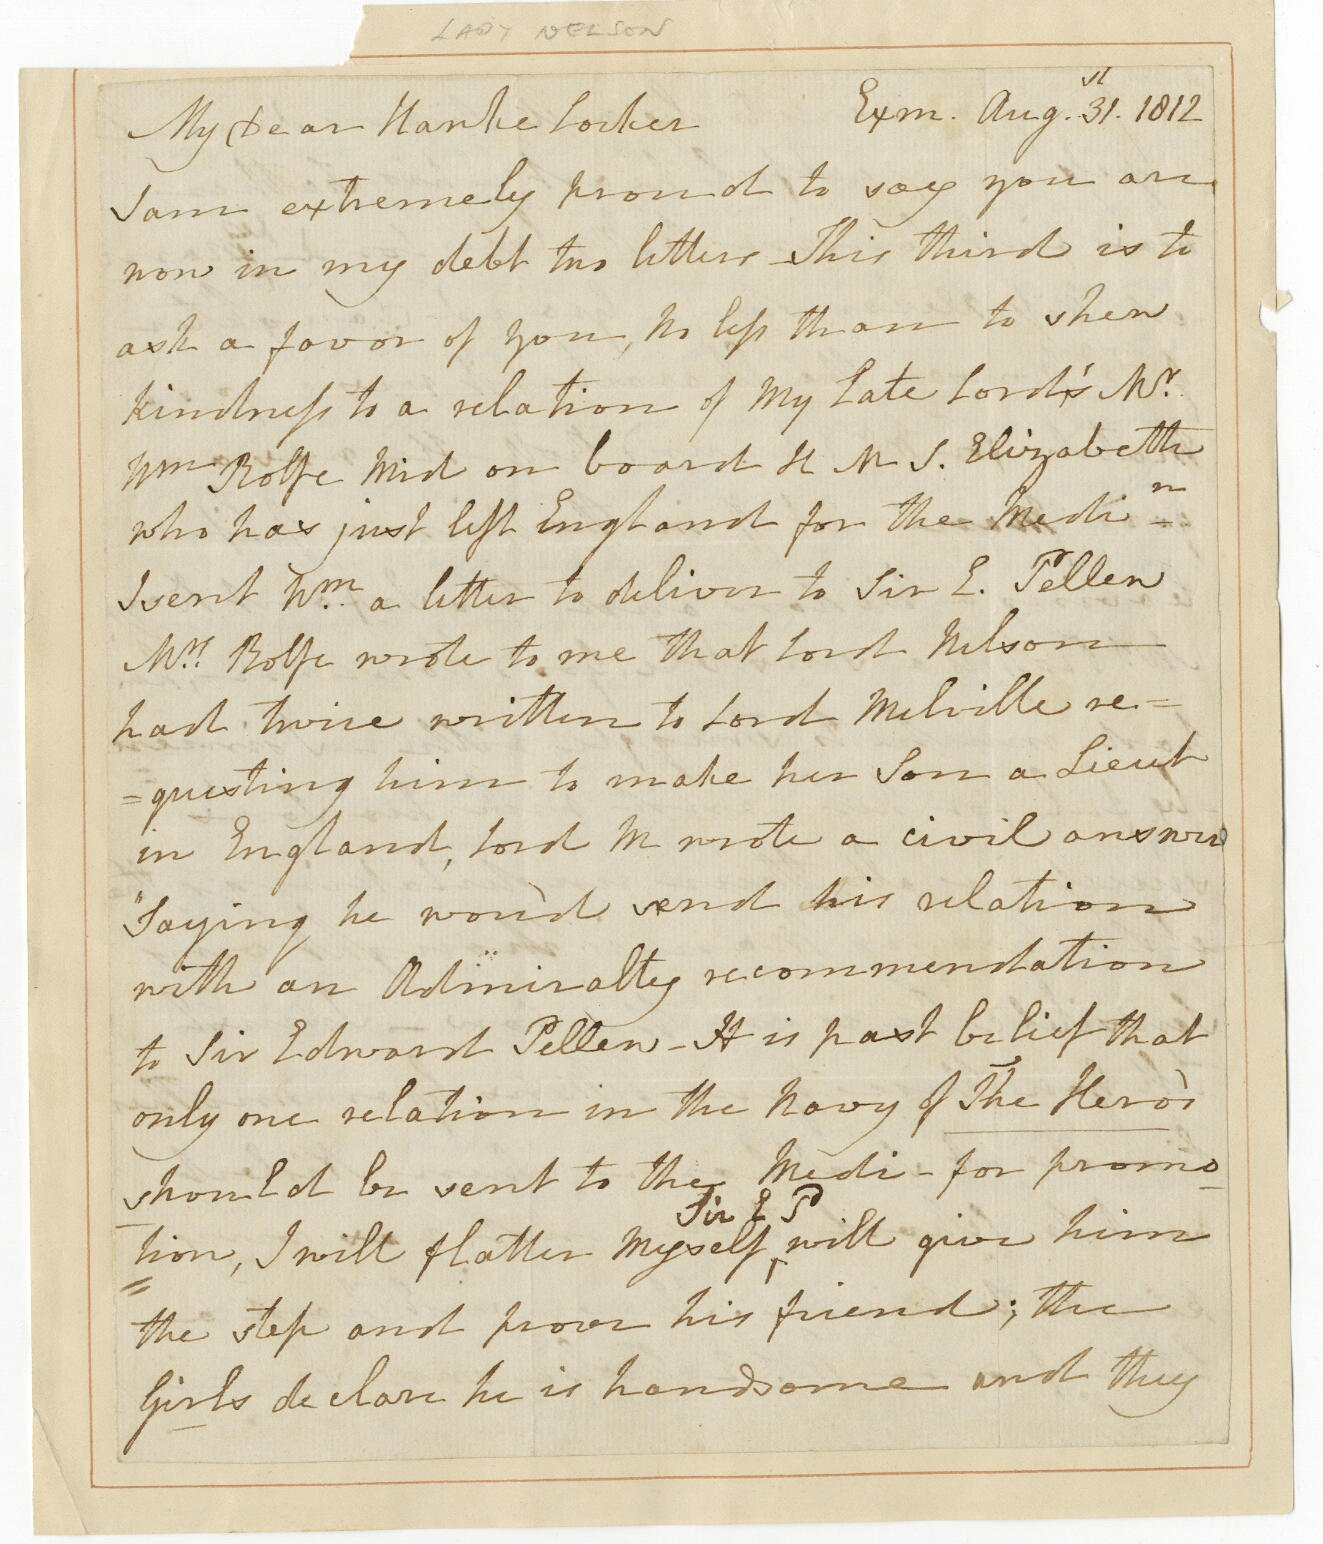 LADY NELSON
Exm. Aug. 31st. 1812
My Dear Hawke Locker
I am extremely proud to say you are
now in my debt two letters This third is to
ask a favor of you, no less than to shew
kindness to a relation of My Late Lord's Mr.
Wm Rolfe Mid on board H M S. Elizabeth
who has just left England for the Medin
I sent Wm. a letter to deliver to Sir E. Pellew
Mrs. Rolfe wrote to me that Lord Nelson
had twice written to Lord Melville re=
=questing him to make her Son a Lieut
in England, Lord M wrote a civil answer
"Saying he wou'd send his relation
with an Admiralty recommendation
to Sir Edward Pellew - It is past belief that
only one relation in the Navy of The Hero's
should be sent to the Medi - for promo
Sir E P
tion, I will flatter Myself ‸ will give him
the step and prove his friend; the
Girls declare he is handsome and they